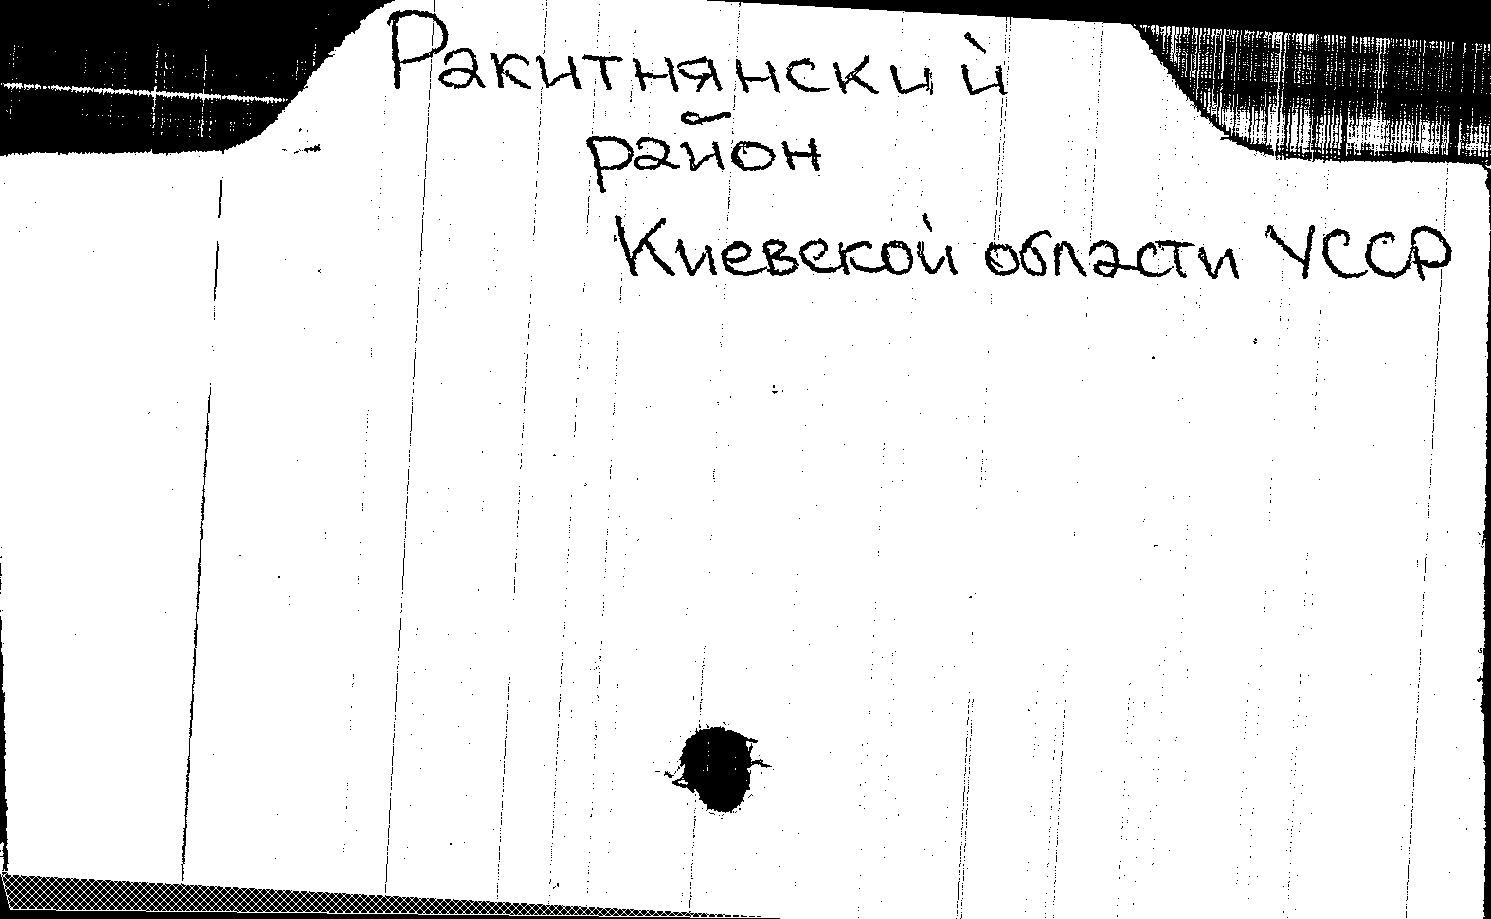 Ракитнянский
район
Киевской области УССР